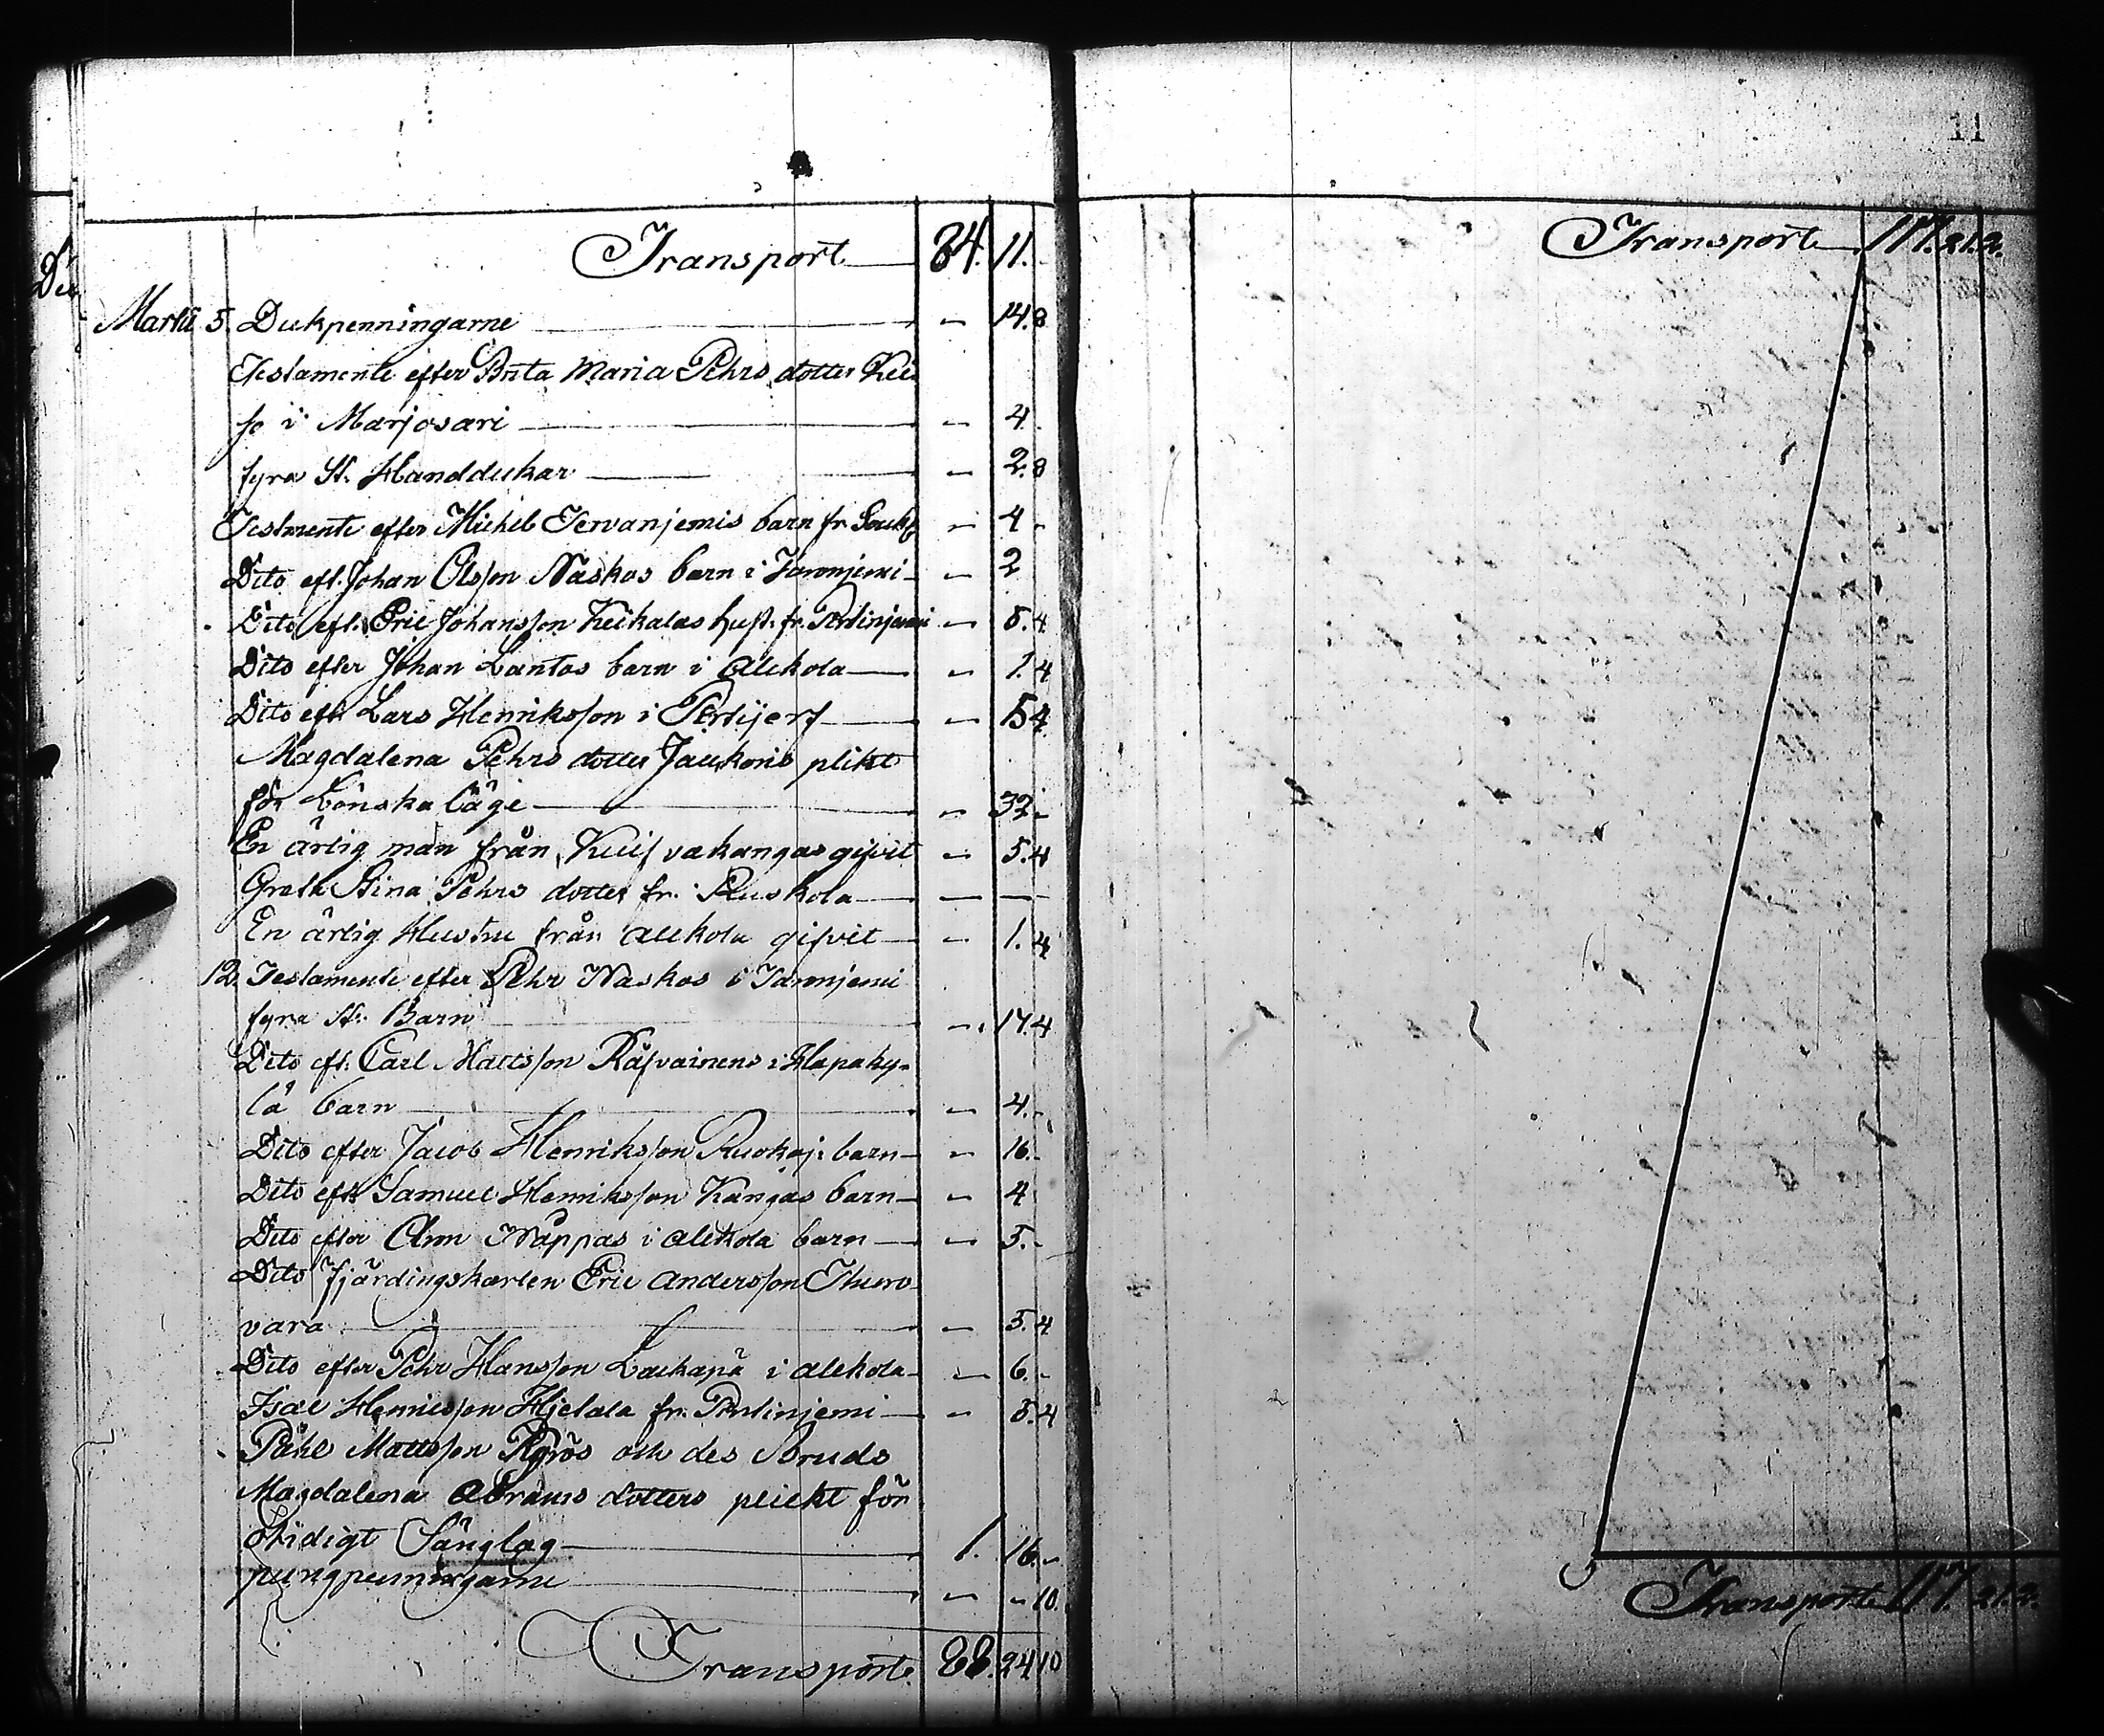 11
Transport 84. 11.
Martii 5. Dukpenningarne — 14. 8
Testamente efter Brita Maria Pehrs dotter
so i Marjosari — 4.
fyra St. Handdukar — 2. 8
Testmente efter Michel Tervanjemis barn fr. — 4 -
Dito eft. Johan Olsson Naskos barn i — 2
Dito eft. Eric Johansson Keikalas hust. fr. — 4
Dito efter Johan Lantos barn i Alckola — 1. 4
Dito eft. Lars Henriksson i — 5 4
Magdalena Pehrs dotter Jauskoris plikt
för Lönska läge — 32 -
En ärlig man från vakangas gifvit — 5. 4
Greta Stina Pehrs dotter fr. Ruskola — —
En ärlig Hustru från Alckola gifvit — 1. 4
12. Testamente efter Pehr Naskos i
fyra St. Barn — 17. 4
Dito eft. Carl Mattsson Räfvainens i Hapaky-
lä barn — 4. -
Dito efter Jacob Henriksson Ruokoj: barn — 16. -
Dito eft. Samuel Henriksson Kangas barn — 4
Dito efter Nåppas i Alckola barn — 5. -
Dito fjärdingskarlen Eric Andersson
vara — 5. 4
Dito efter Pehr Hansson Laukapä i Alckola — 6. -
Isac Henricsson Hjelala fr. — 4
Påhl Mattsson och des Bruds
Magdalena Abrams dotters plickt för
otidigt Sänglag 1. 16. -
pungpenningarne — - 10.
Transport 88. 24 10
Transport 117. 21. 2.
Transport 117. 21. 2.